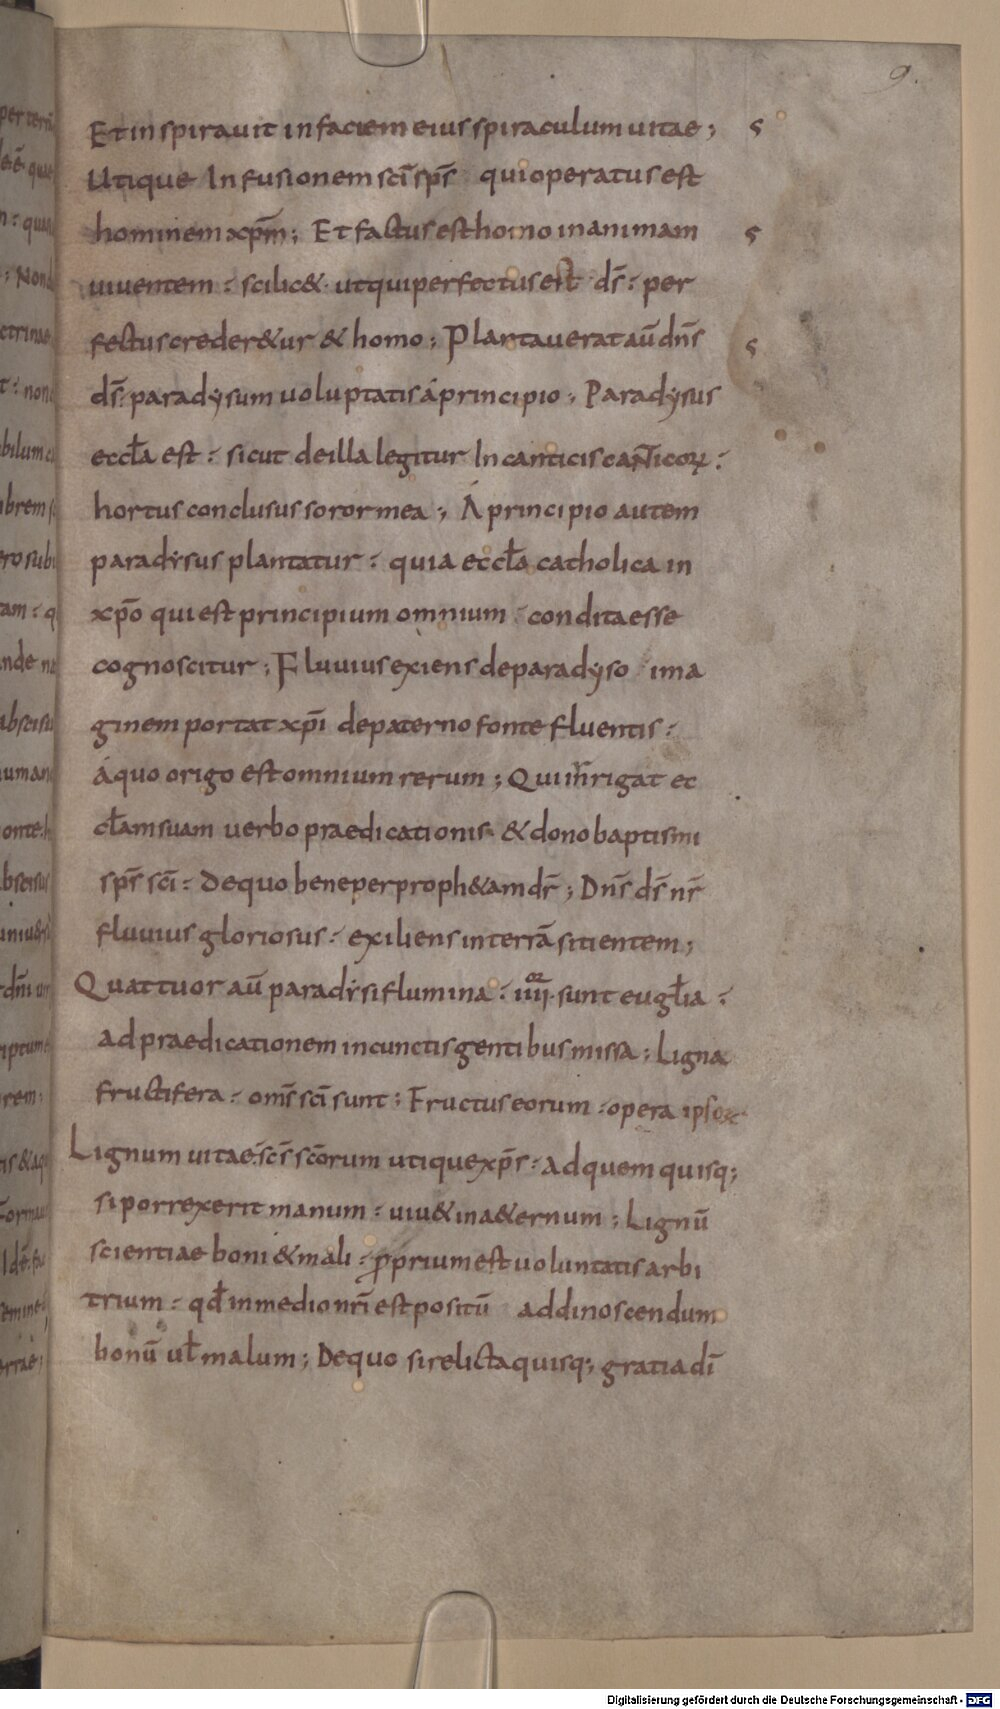 9.
Et inspirauit in faciem eius spiraculum uitae; s
Utique Infusionem sc̄i sp̄s qui operatus est
hominem xp̄m; Et factus est homo in animam s
uiuentem: scilic& ut qui perfectus est d̄s: per
fectus creder&ur & homo; Plantauerat aū dn̄s s
d̄s: paradysum uoluptatis á principio; Paradysus
eccl̄a est: sicut de illa legitur In canticis canticoꝝ:
hortus conclusus soror mea; Á principio autem
paradysus plantatur: quia eccl̄a catholica in
xp̄o qui est principium omnium condita esse
cognoscitur; Fluuius exiens de paradyso ima
ginem portat xp̄i de paterno fonte fluentis:
á quo origo est omnium rerum; Qui inrigat ec
cl̄am suam uerbo praedicationis & dono baptismi
sp̄s sc̄i: de quo bene per proph&am dr̄; Dn̄s d̄s nr̄
fluuius gloriosus: exiliens in terrā sitientem;
Quattuor aū paradysi flumina: iiii oꝝ sunt eugl̄ia:
ad praedicationem in cunctis gentibus missa; Ligna
fructifera: om̄s sc̄i sunt; Fructus eorum: opera ipsoꝝ
Lignum uitae: sc̄s sc̄orum utique xp̄s: ad quem quisq;
si porrexerit manum: uiu& in a&ernum; Lignū
scientiae boni & mali: ꝓprium est uoluntatis arbi
trium: qd̄ in medio nr̄i est positū ad dinoscendum
bonū ul̄ malum; De quo si relicta quisq; gratia dī
per terrā
quan
Non d
ctrinae
t: non
bilum
brem
ro sub
tam: q
nde n
abscisu
uman
onte
bscisus
dn̄i
iptum
rem:
Digitalisierung gefördert durch die Deutsche Forschungsgemeinschaft - DFG